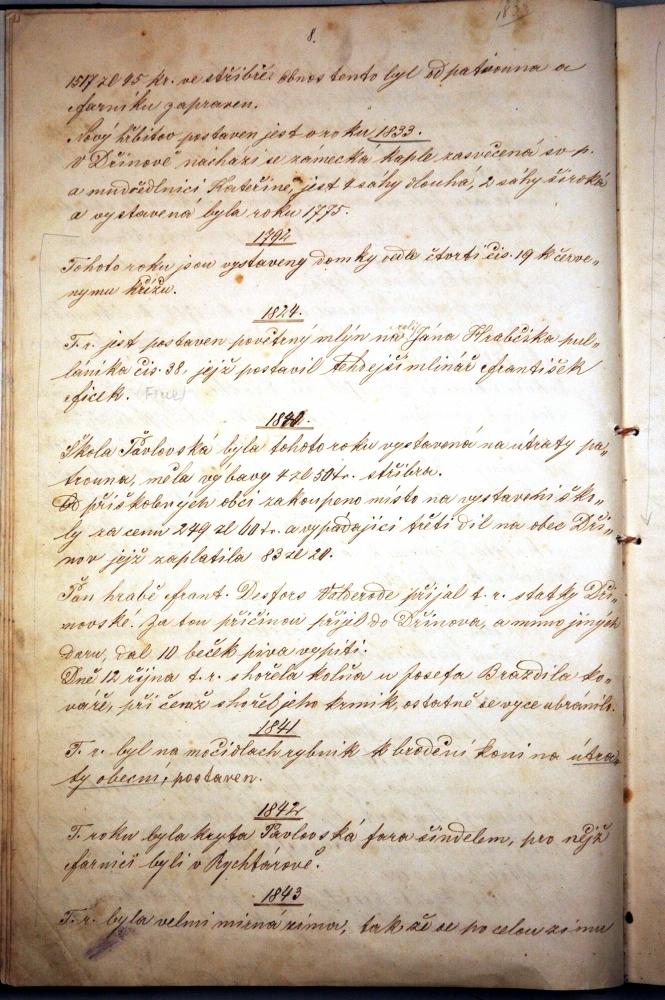 8.
1517 zl 45 kr. ve stříbře obnos tento byl od patronna a
farníku zapraven.
Nový hřbitov postaven jest v roku 1833.
V Dřínově nachází se zámecká kaple zasvěcená sv. p.
a mudředlnici Kateřině, jest 4 sáhy dlouhá, 2 sáhy široká
a vystavená byla roku 1775.
1792
Tohoto roku jsou vystaveny domky vedle čtvrti čis. 19 k červe„
nymu křížu.
1824.
T. r. jest postaven povětrný mlýn na roli Jána Hrabčska pul„
láníka čis. 38, jejž postavil tehdejší mlinář František
Ficek.
1840.
Škola Pavlovská byla tohoto roku vystavená na útraty pa„
tronna, měla výbavy 4 zl 50 kr. stříbra.
Od příškolných obcí zakoupeno místo na vystavení ško„
ly za cenu 249 zl 60 kr. a vypadající třetí díl na obec Dří„
nov jejž zaplatila 83 zl 20.
Pan hrabě Frant. Desfors Valderode přijal t. r. statky Dří„
novské. Za tou příčinou přijel do Dřínova, a mimo jiných
daru, dal 10 beček piva vypíti.
Dně 12 října t. r. shořela kolňa u Josefa Brazdila ko„
váře, při čemž shořel jeho krmik, ostatně se vyce ubránilo.
1841
T. r. byl na močidlach rybník k brodění koní na útra„
ty obecní, postaven.
1842
T. roku byla kryta Pavlovská fara šindelem, pro nějž
farníci byli v Rychtářově.
1843
T. r. byla velmi mírná zima, tak že se po celou zimu